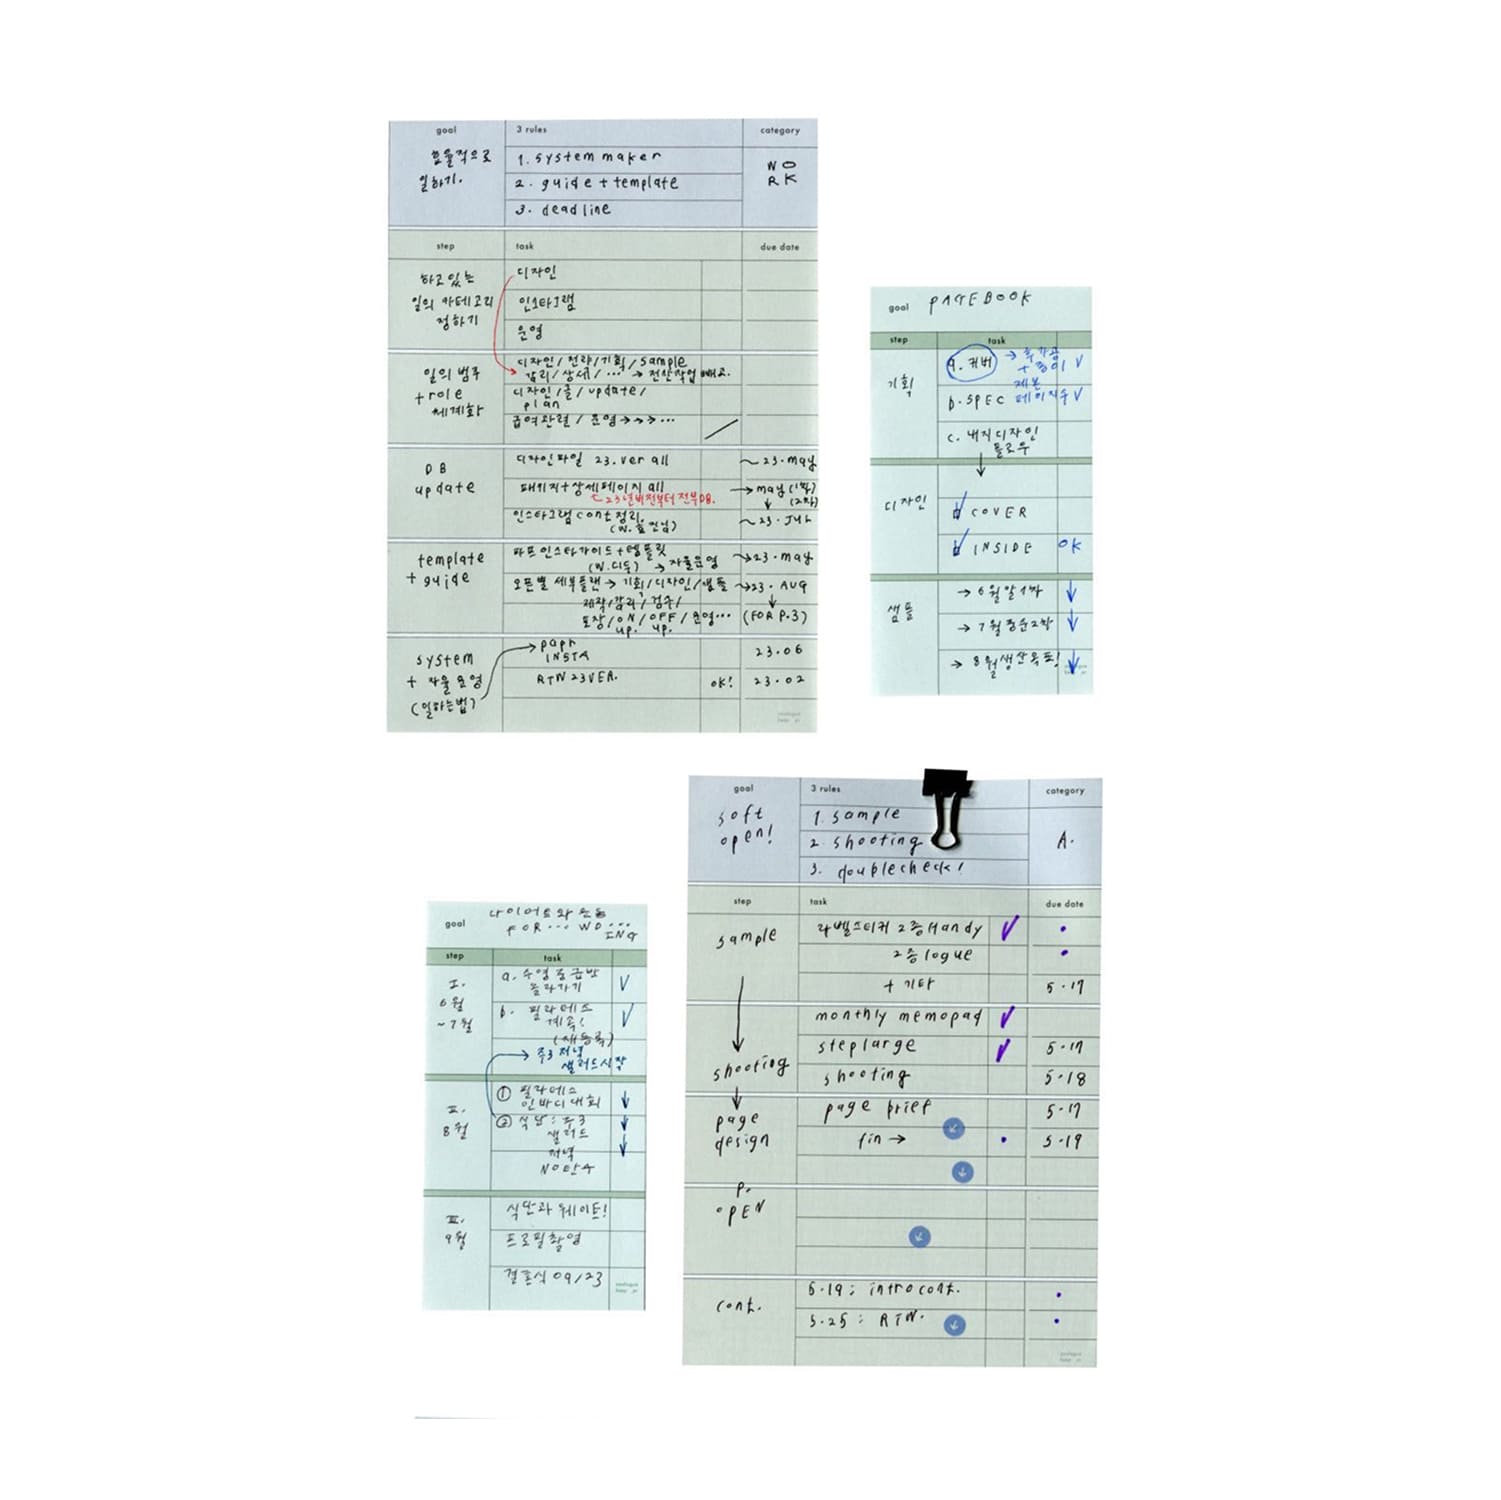 goal
3 rules
category
효율적으로
일하기.
1. system maker
2. guide + template
3. deadline
WO
RK
step
task
due date
하고 있는
일의 카테고리
정하기
디자인
인스타그램
운영
일의 범주
+ role
체계화
디자인 / 전략 / 기획 / sample
감리 / 상세 / ... → 전산작업 빼고.
디자인 / 글 / update /
plan
급여관련 / 운영 →→→...
DB
update
디자인파일 23.ver all
~23.may
패키지+상세페이지 all
→ may (1차)
(2차)
23년버전부터 전부 DB.
인스타그램 cont 정리.
~23.JUL
template
+ guide
파프 인스타가이드 + 템플릿
→ 자율운영
~23.may
오픈별 세부플랜 → 기획/디자인/샘플
~23.AUG
제작/감리/검수/
포장/ON/OFF/운영...
up. up.
(FOR P.3)
system
+ 자율운영
(일하는법)
papr
INSTA
23.06
RTW 23VER.
OK!
23.02
goal
PAGEBOOK
step
task
기획
a. 커버
→ 후가공
+ 종이 V
제본
b. SPEC
페이지수 V
c. 내지디자인
플로우
디자인
COVER
INSIDE
OK
샘플
→ 6월말 1차
→ 7월중순 2차
→ 8월생산목표!
goal
soft
open!
3 rules
1. sample
2. shooting
3. doublecheck!
category
A.
step
task
due date
sample
라벨스티커 2종 Handy
2종 logue
+ 기타
5.17
monthly memopad
steplarge
5.17
shooting
shooting
5.18
page
design
page brief
5.17
fin →
5.19
P.
OPEN
cont.
5.19 : intro cont.
5.25 : RTW.
goal
다이어트와 운동
FOR ... WD ...
ING
step
task
I.
6월
~7월
a. 수영 중급반
올라가기
b. 필라테스
계속!
(재등록)
→ 주3 저녁
샐러드시작
II.
8월
① 필라테스
인바디대회
② 식단 : 주3
샐러드
저녁
NO탄수
III.
9월
식단과 웨이트!
프로필촬영
결혼식 09/23